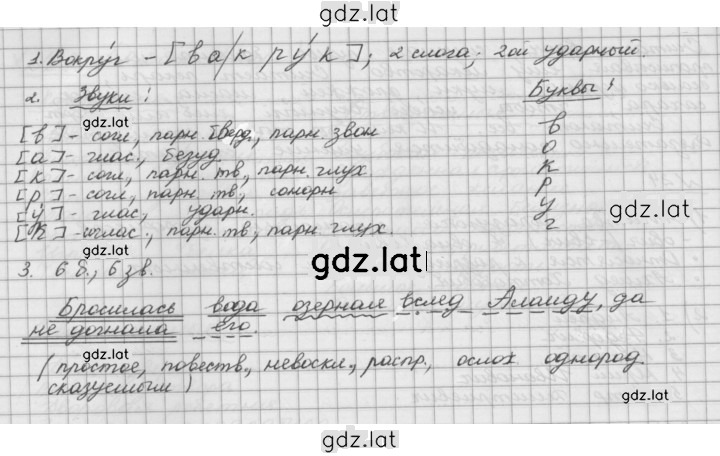 gdz.lat
1. Вокру́г - [ва/к ру́к]; 2 слога; 2ой ударный.
2. Звуки: Буквы:
gdz.lat
[в] - согл, парн. тверд., парн. звон в
[а] - глас., безуд. о
[к] - согл, парн. тв, парн. глух к
[р] - согл, парн. тв, сонорн р
gdz.lat
[у́] - глас, ударн. у
[к] - соглас., парн. тв, парн глух. г
gdz.lat
gdz.lat
3. 6 б., 6 зв.
Бросилась вода озерная вслед Алаиду, да
не догнала его.
gdz.lat
(простое, повеств., невоскл., распр, ослож однород.
сказуемым)
gdz.lat
gdz.lat